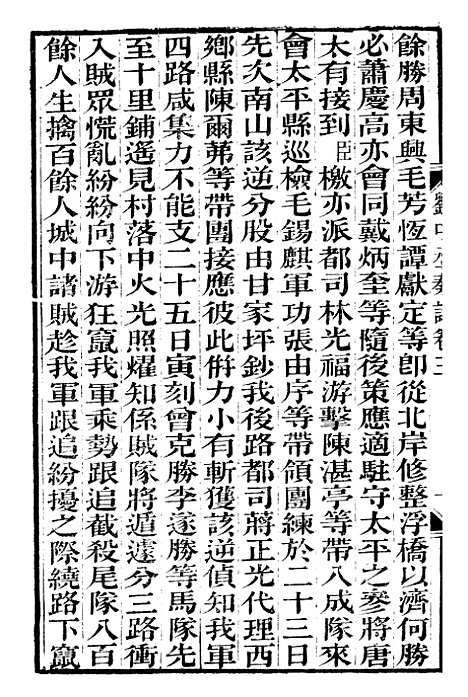 餘勝周東興毛芳恆譚獻定等卽從北岸修整浮橋以濟何勝
必蕭慶高亦會同戴炳奎等隨後策應適駐守太平之參將唐
太有接到臣檄亦派都司林光福游擊陳湛亭等帶八成隊來
會太平縣巡檢毛錫麒軍功張由序等帶領團練於二十三日
先次南山該逆分股由甘家坪鈔我後路都司蔣正光代理西
鄉縣陳爾茀等帶團接應彼此倂力小有斬獲該逆偵知我軍
四路咸集力不能支二十五日寅刻曾克勝李遂勝等馬隊先
至十里鋪遙見村落中火光照燿知係賊隊將遁遽分三路衝
入賊眾慌亂紛紛向下游狂竄我軍乘勢跟追截殺尾隊八百
餘人生擒百餘人城中諸賊趁我軍跟追紛擾之際繞路下竄